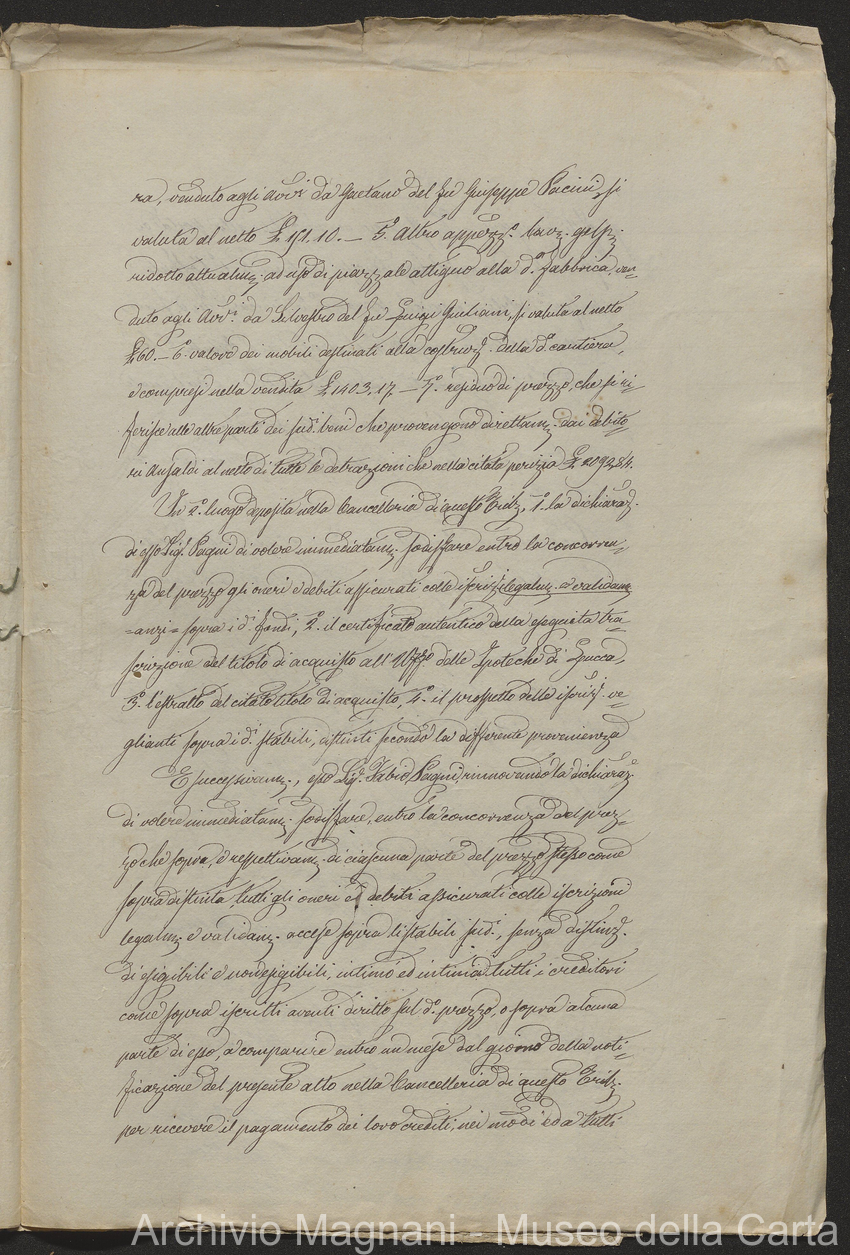 ra, venduto agli Avv.i da Gaetano del fu Giuseppe Pacini, si
valuta al netto £ 151. 10. — 5.° Altro appezz.o lav.z gelz.
ridotto attualm. ad uso di piazzale attiguo alla d.a fabbrica, ven-
duto agli Avv.i da Silvestro del fu Luigi Giuliani, si valuta al netto
£ 60. — 6. valore dei mobili destinati alla costruz. della d.a cartiera,
e compresi nella vendita £ 1403. 17. — 7.° residuo di prezzo, che si ri-
ferisce alle altre parti dei sud.i beni che provengono direttam. dai debito-
ri Ansaldi al netto di tutte le detrazioni che nella citata perizia £ 2092. 84.
In 2.° luogo deposita nella Cancelleria di questo Trib., 1.° la dichiaraz.
di esso Sig.r Pagni di volere immediatam. sodisfare entro la concorren-
za del prezzo gli oneri e debiti assicurati colle iscriz. legalm. e validam.
= anzi = sopra i d.i fondi, 2.° il certificato autentico della eseguita tra-
scrizione del titolo di acquisto all' Uffizio delle Ipoteche di Lucca,
3.° l'estratto del citato titolo di acquisto, 4.° il prospetto delle iscriz. ve-
glianti sopra i d.i stabili, distinti secondo la differente provenienza
E successivam., esso Sig.r Fabio Pagni, rinnovando la dichiaraz.
di volere immediatam. sodisfare, entro la concorrenza del prez-
zo che sopra, e respettivam. di ciascuna parte del prezzo stesso come
sopra distinta, tutti gli oneri e debiti assicurati colle iscrizioni
legalm. e validam. accese sopra li stabili sud.i, senza distinz.
di esigibili e non esigibili, intimò ed intima tutti i creditori
come sopra iscritti aventi diritto sul d.o prezzo, o sopra alcuna
parte di esso, a comparire entro un mese dal giorno della noti-
ficazione del presente atto nella Cancelleria di questo Trib.
per ricevere il pagamento dei loro crediti, nei modi ed a tutti
Archivio Magnani - Museo della Carta